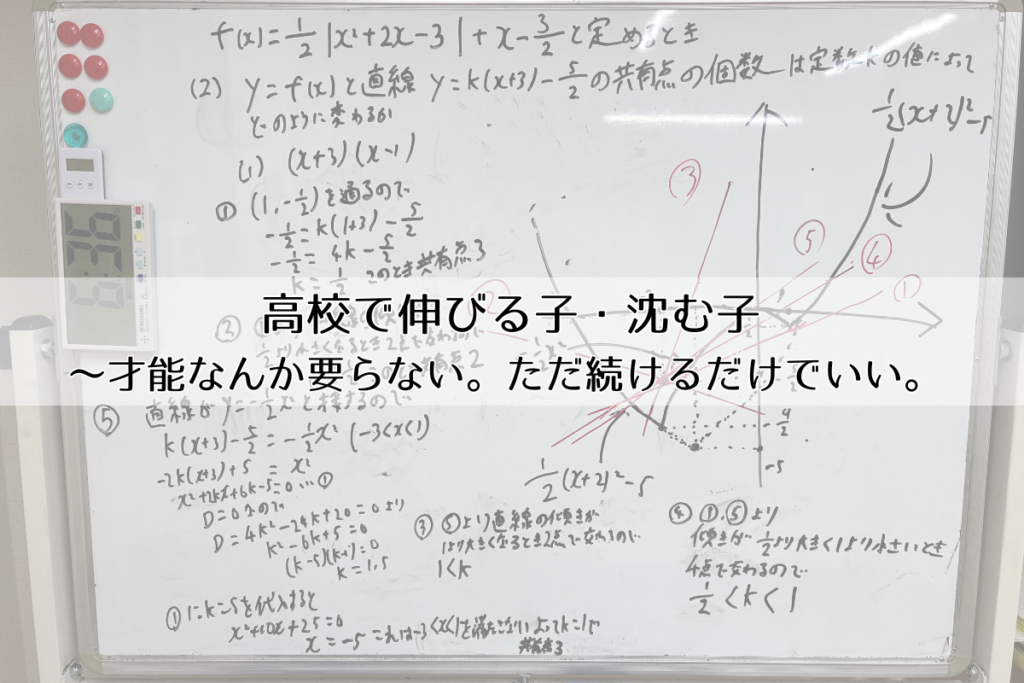 f(x)=1/2|x²+2x-3|+x-3/2と定めるとき
(2) y=f(x)と直線 y=k(x+3)-5/2の共有点の個数は定数kの値によって
どのように変わるか
1/2(x+2)²-5
(i) (x+3)(x-1)
① (1,-1/2)を通るので
-1/2=k(1+3)-5/2
-1/2=4k-5/2
k=1/2 このとき共有点3
③
⑤
④
①
6:36
高校で伸びる子・沈む子
〜才能なんか要らない。ただ続けるだけでいい。
②
-1/2x²
⑤ 直線がy=-1/2x²と接するので
k(x+3)-5/2=-1/2x² (-3<x<1)
-2k(x+3)+5=x²
x²+2kx+6k-5=0…①
D=0なので
D=4k²-24k+20=0より
k²-6k+5=0
(k-5)(k-1)=0
k=1,5
①にk=5を代入すると
x²+10x+25=0
x=-5 これは-3<x<1を満たさない よってk=1で
共有点3
-5
1/2(x+2)²-5
③ ⑤より直線の傾きが
1より大きくなるとき2点で交わるので
1<k
④ ①,⑤より
傾きが1/2より大きく1より小さいとき
4点で交わるので
1/2<k<1